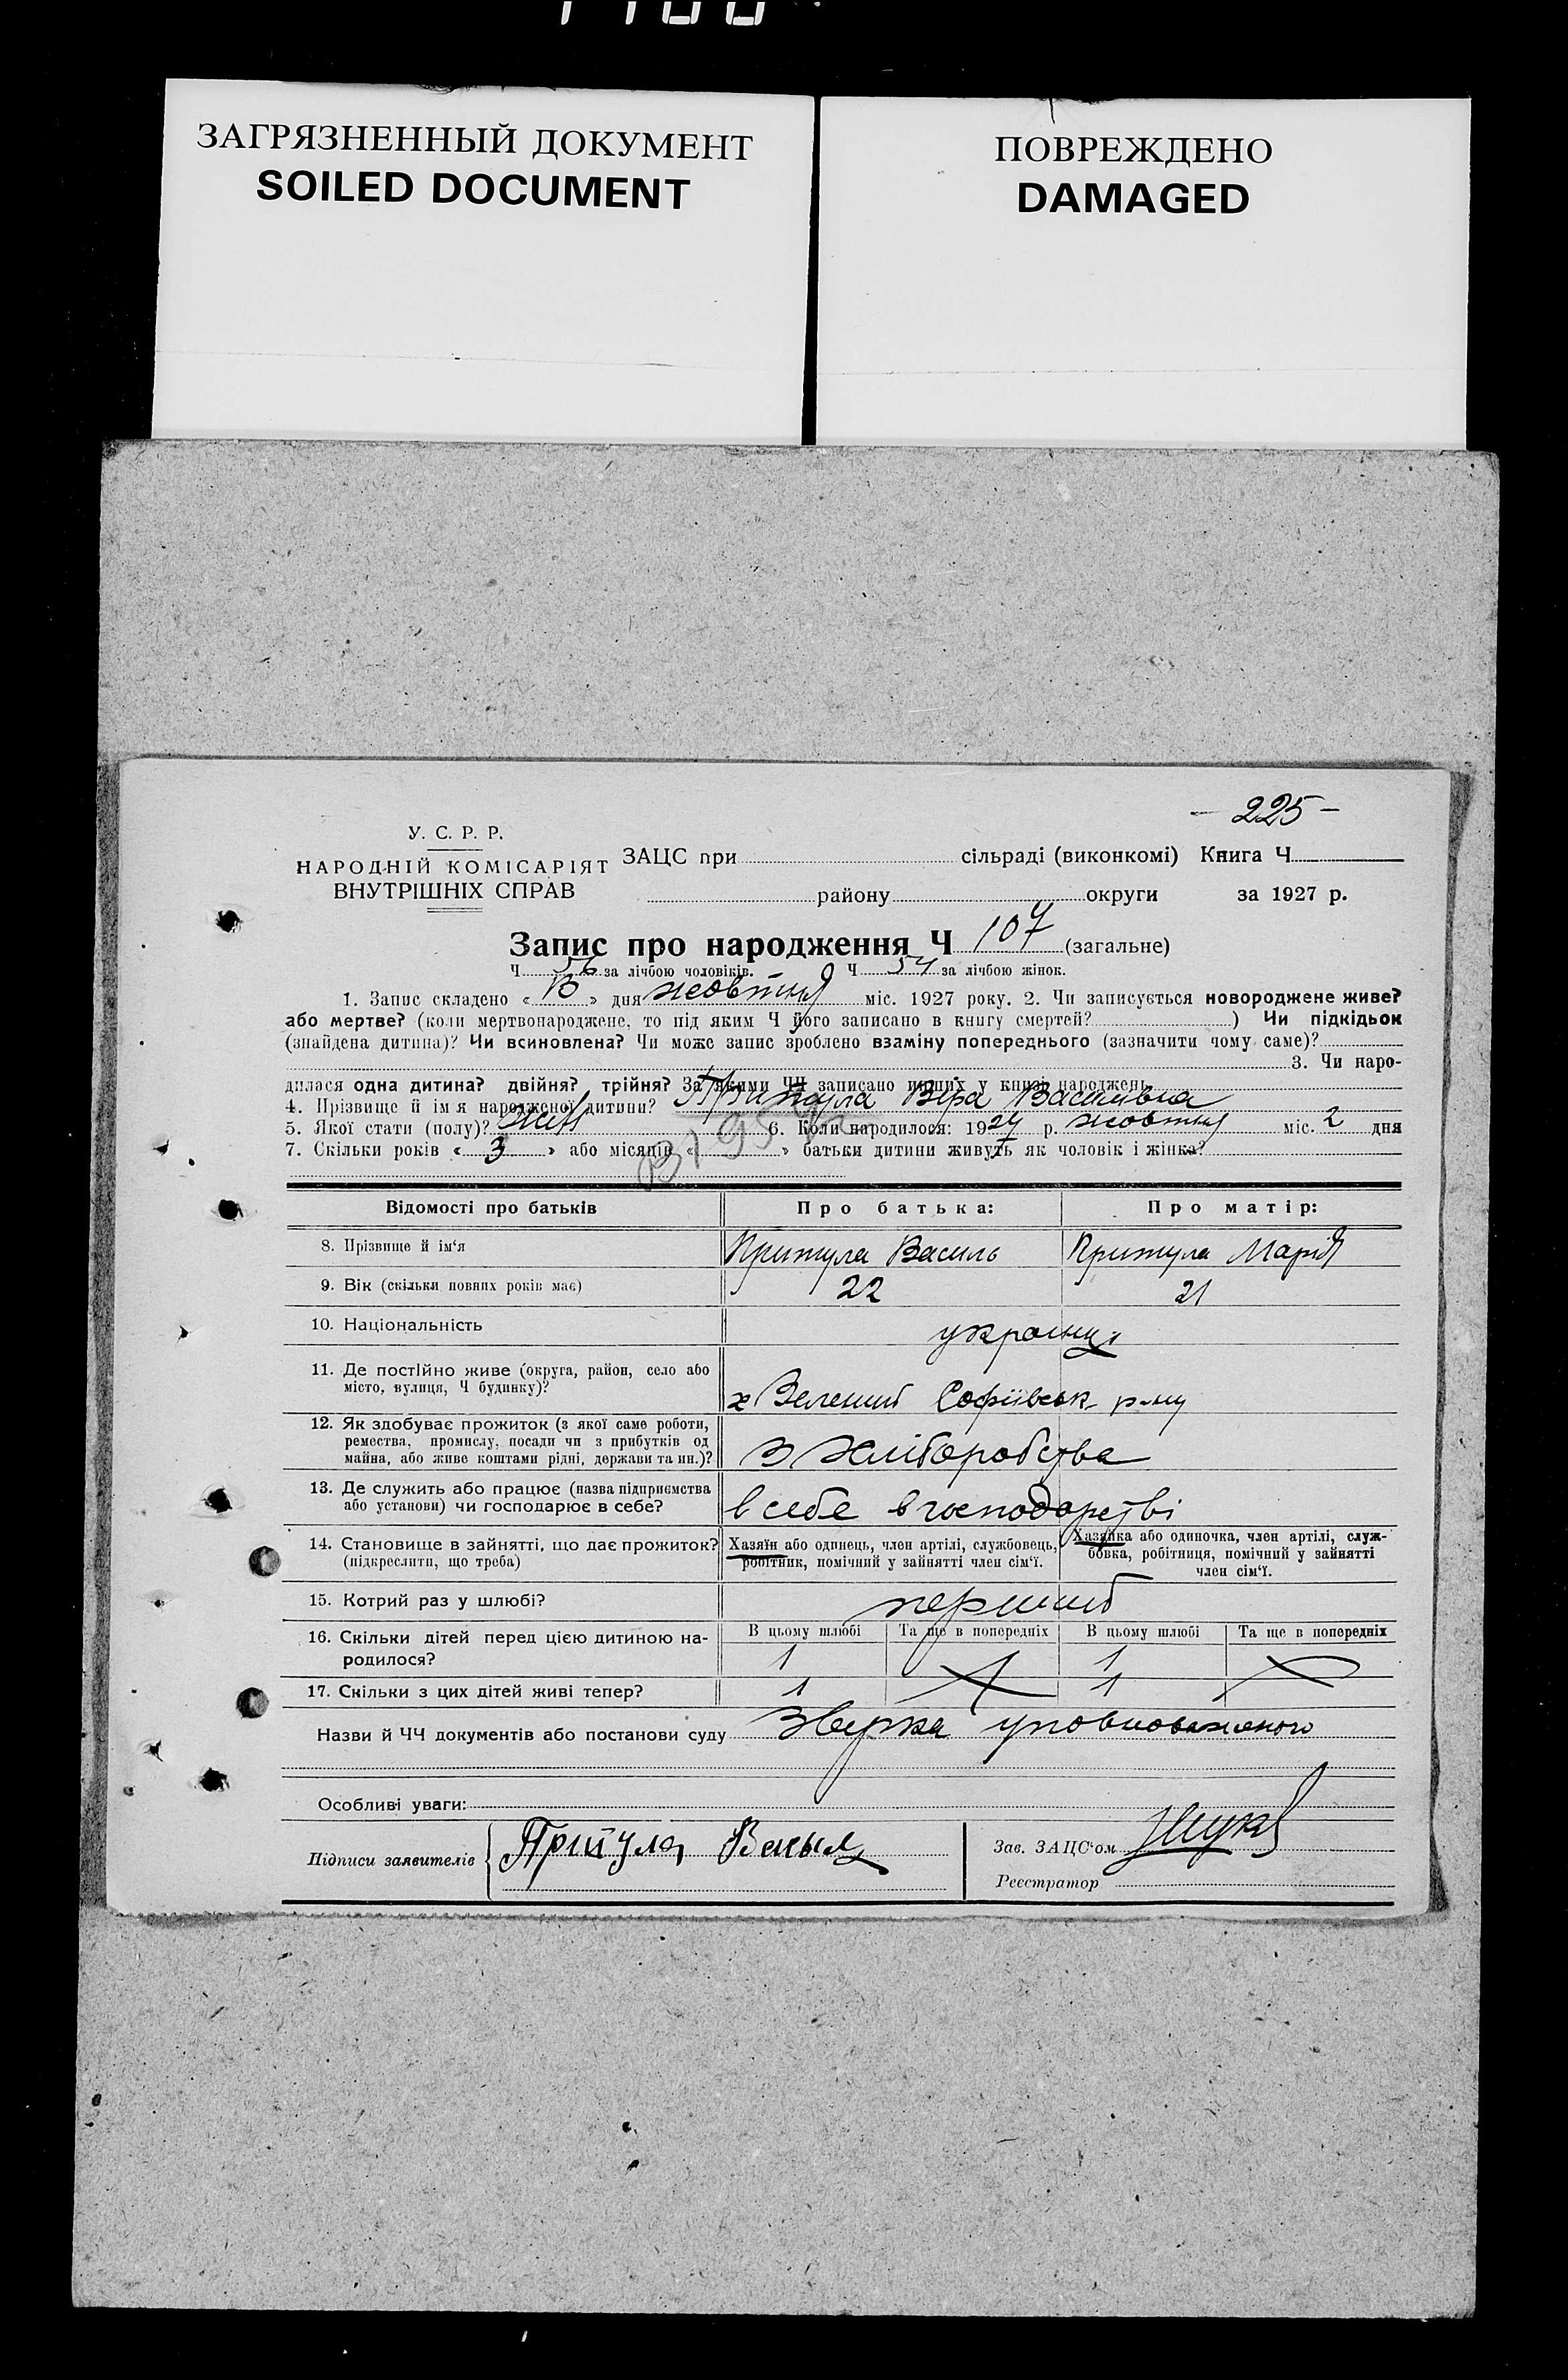 ЗАГРЯЗНЕННЫЙ ДОКУМЕНТ
SOILED DOCUMENT
ПОВРЕЖДЕНО
DAMAGED
- 225 -
У. С. Р. Р.
НАРОДНІЙ КОМІСАРІЯТ
ВНУТРІШНІХ СПРАВ
ЗАЦС при сільраді (виконкомі) Книга Ч
району округи за 1927 р.
Запис про народження Ч 107 (загальне)
Ч 56 за лічбою чоловіків. Ч 51 за лічбою жінок.
1. Запис складено « » дня жовтня міс. 1927 року. 2. Чи записується новороджене живе?
або мертве? (коли мертвонароджене, то під яким Ч його записано в книгу смертей? ) Чи підкідьок
(знайдена дитина)? Чи всиновлена? Чи може запис зроблено взаміну попереднього (зазначити чому саме)?
3. Чи наро-
дилася одна дитина? двійня? трійня? За якими ЧЧ записано инших у книзі народжень
4. Прізвище й ім'я народженої дитини? Притула Віра Василівна
5. Якої стати (полу)? жін 6. Коли народилося: 1927 р. жовтня міс. 2 дня
7. Скільки років « 3 » або місяців « » батьки дитини живуть як чоловік і жінка?
Відомості про батьків Про батька: Про матір:
8. Прізвище й ім'я Притула Василь Притула Марія
9. Вік (скільки повних років має) 22 21
10. Національність україн
11. Де постійно живе (округа, район, село або
місто, вулиця, Ч будинку)? х Зелений Софіївськ. р-ну
12. Як здобуває прожиток (з якої саме роботи,
ремества, промислу, посади чи з прибутків од
майна, або живе коштами рідні, держави та ин.)? З хліборобства
13. Де служить або працює (назва підприємства
або установи) чи господарює в себе? в себе в господарстві
14. Становище в зайнятті, що дає прожиток?
(підкреслити, що треба)
Хазяїн або одинець, член артілі, службовець,
робітник, помічний у зайнятті член сім'ї.
Хазяйка або одиночка, член артілі, служ-
бовка, робітниця, помічний у зайнятті
член сім'ї.
15. Котрий раз у шлюбі? перший
В цьому шлюбі Та ще в попередніх В цьому шлюбі Та ще в попередніх
16. Скільки дітей перед цією дитиною на-
родилося? 1 1
17. Скільки з цих дітей живі тепер? 1 1
Назви й ЧЧ документів або постанови суду Звурка уповноваженого
Особливі уваги:
Підписи заявителів Притула Васыл
Зав. ЗАЦС'ом
Реєстратор